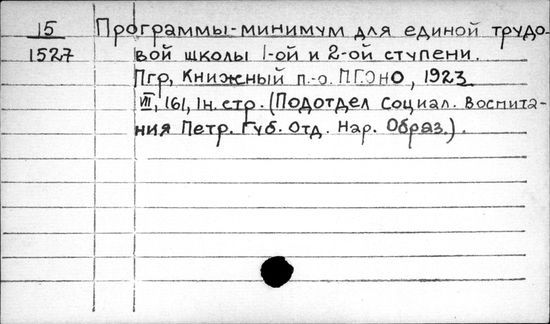 15 Программы-минимум для единой трудо-
1527 вой школы 1-ой и 2-ой ступени.
Пгр, Книжный п.-о. ПГОНО, 1923
VIII, 161, 1н. стр. (Подотдел Социал. Воспита-
ния Петр. Губ. Отд. Нар. Образ.).